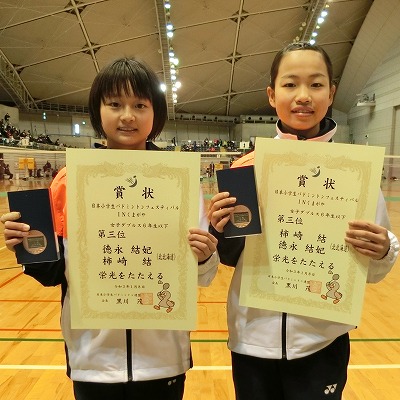 賞状
日本小学生バドミントンフェスティバル
INくまがや
女子ダブルス6年生以下
第三位
徳永 結妃
柿崎 結
(北北海道)
栄光をたたえる
令和2年1月5日
日本小学生バドミントン連盟
会長 黒川 茂
賞状
日本小学生バドミントンフェスティバル
INくまがや
女子ダブルス6年生以下
第三位
柿崎 結
徳永 結妃
(北北海道)
栄光をたたえる
日本小学生バドミントン連盟
会長 黒川 茂
YONEX